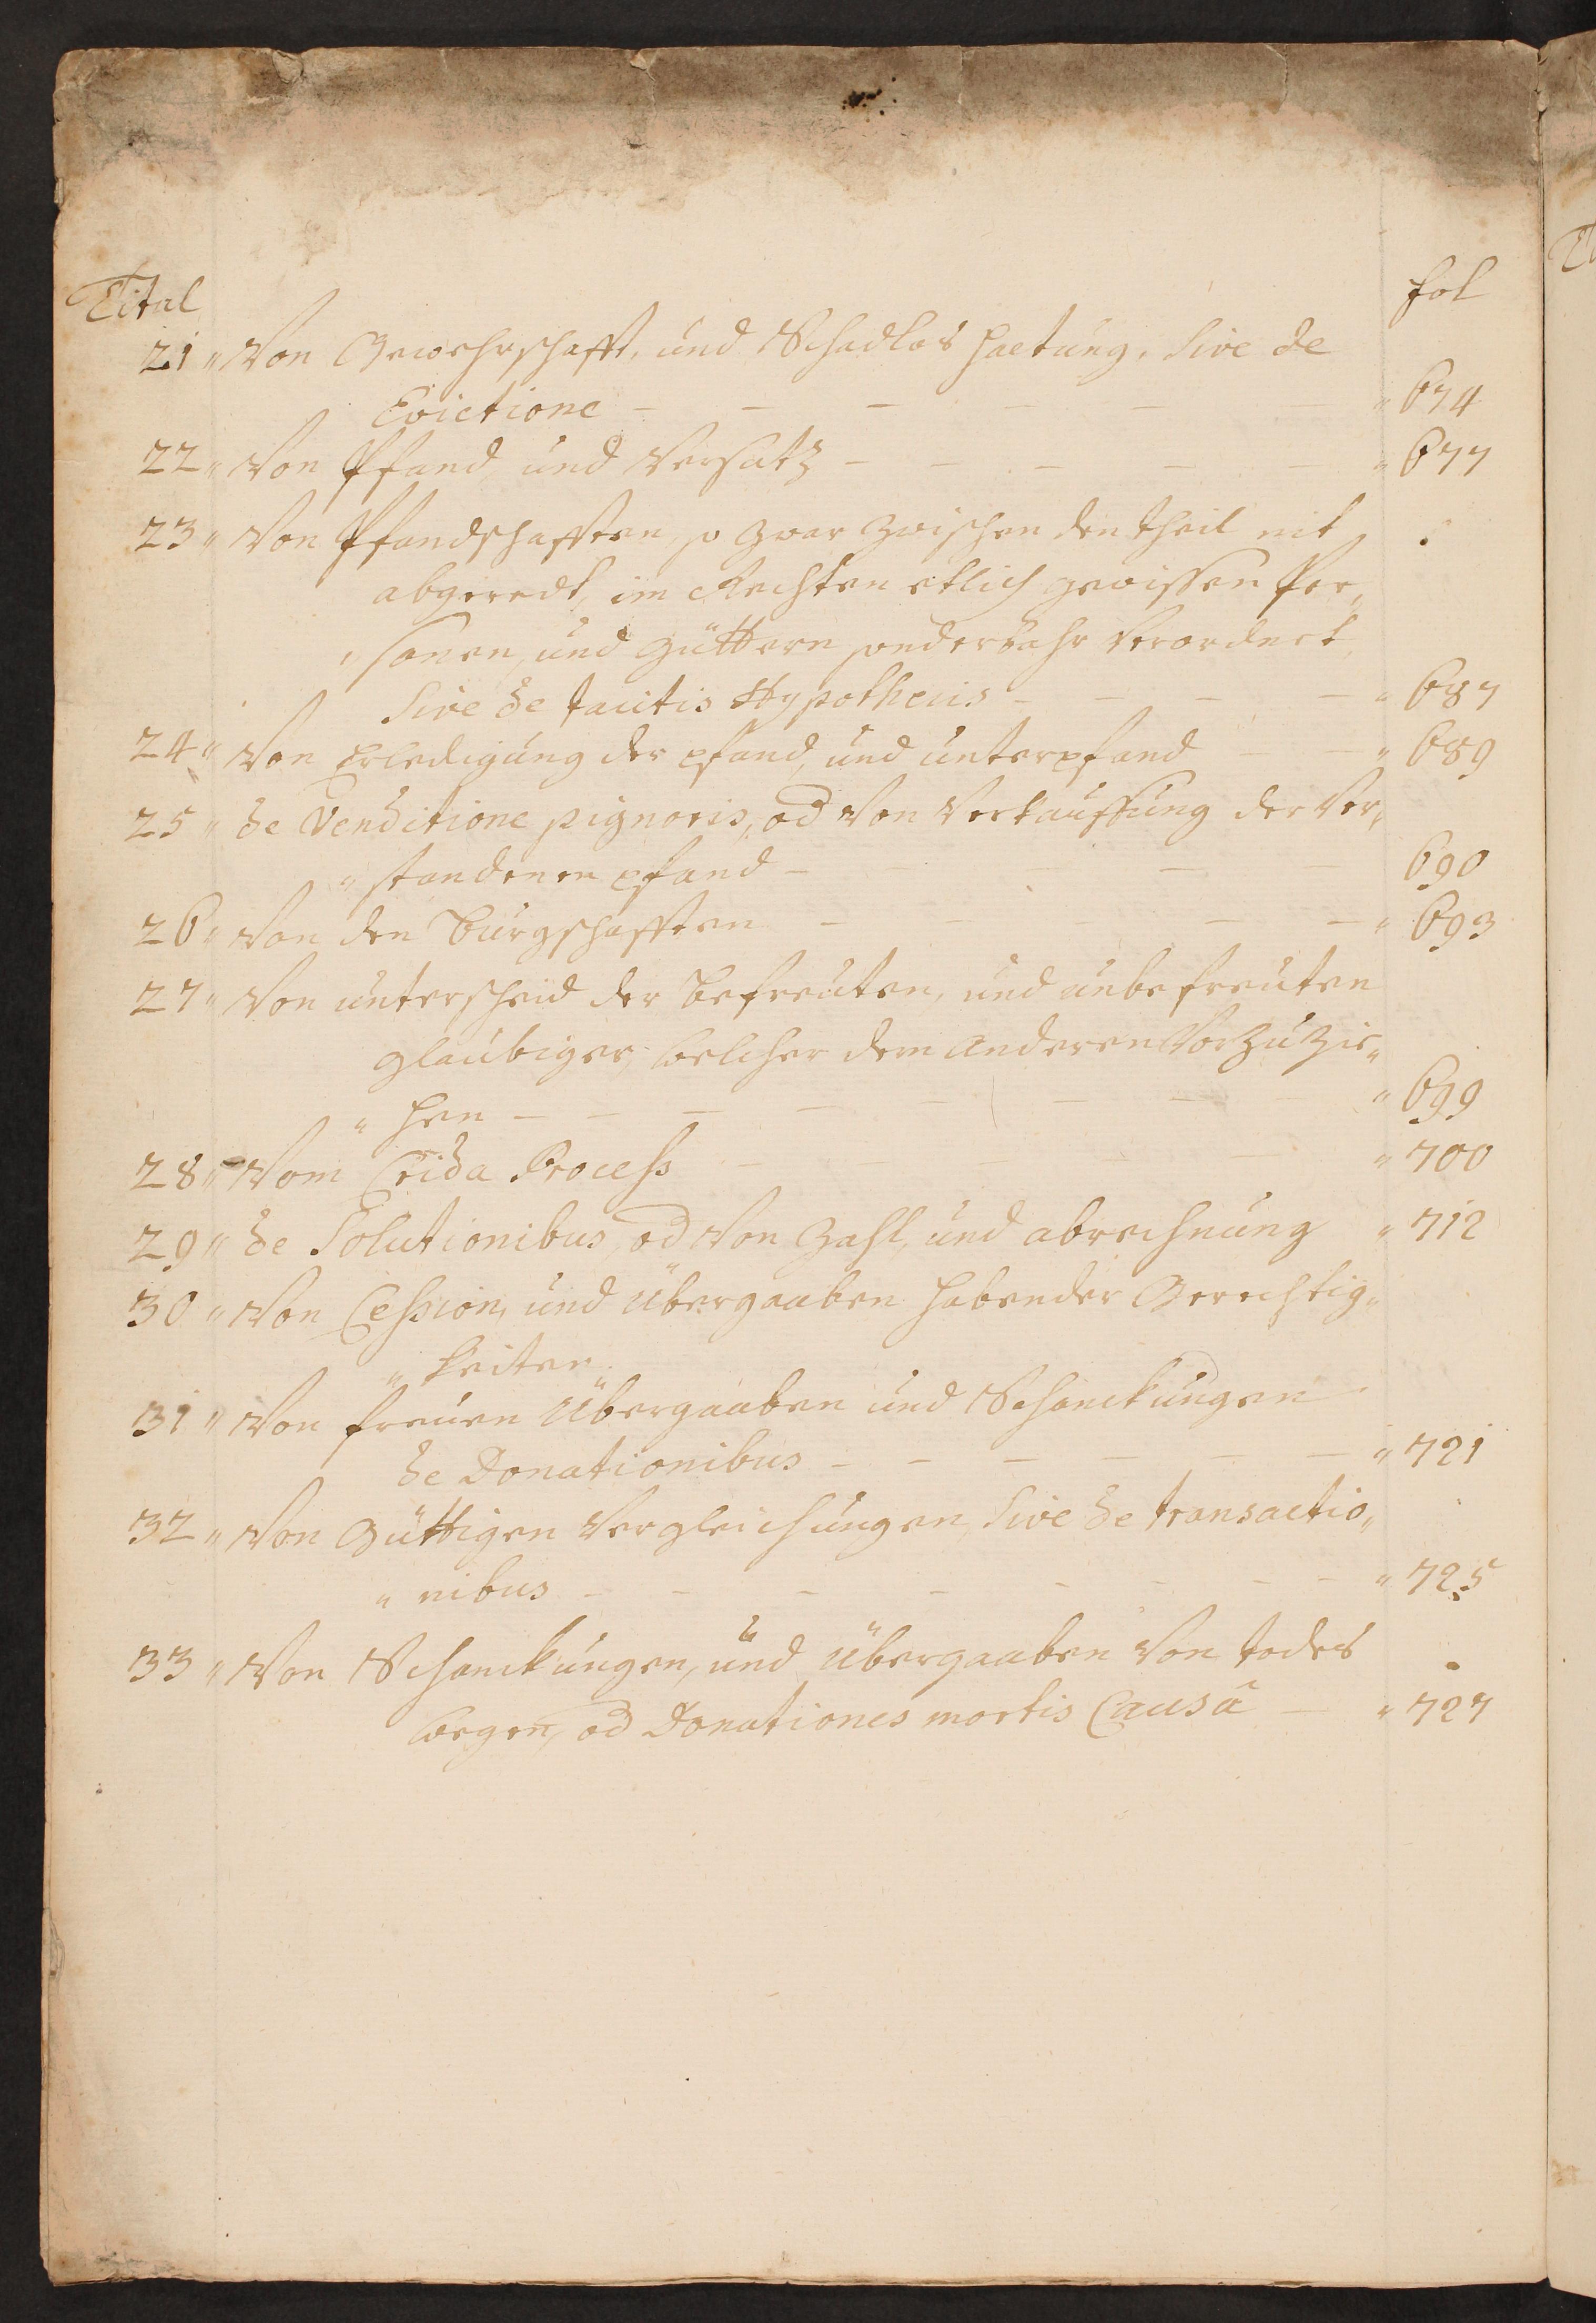 Titul fol
21 " Von Gewehrschafft, und Schadlos haltung, sive de
Evictione - - - - - - " 674
22 " Von Pfand und Versatz - - - - - " 677
23 " Von Pfandschafften, so zwar zwischen den theil nit
abgeredt, im Rechten etlich gewissen Per„
„sonen, und güttern sonderbahr Verordnet,
sive de tacitis Hypothecis - - - - " 687
24 " Von Erledigung der pfand, und unterpfand - - " 689
25 " de Venditione pignoris, od Von Verkauffung der Ver„
„standenen pfand - - - - 690
26 " Von den Burgschafften - - - - - " 693
27 " Von unterscheid der befreuten, und unbefreuten
glaubiger, welcher dem anderen Vorzuzie„
„hen - - - - - - - - " 699
28 " Vom Crida Process - - - - " 700
29 " de Solutionibus, od Von Zahl, und abrechnung " 712
30 " Von Cession, und übergaaben habender Gerechtig„
„keiten
31 " Von freuen Übergaaben und Schanckungen
de Donationibus - - - - - " 721
32 " Von Güttigen Vergleichungen, sive de transactio„
„nibus - - - - - - - - " 725
33 " Von Schanckungen, und übergaaben Von todes
wegen, od Donationes mortis Causâ - " 727